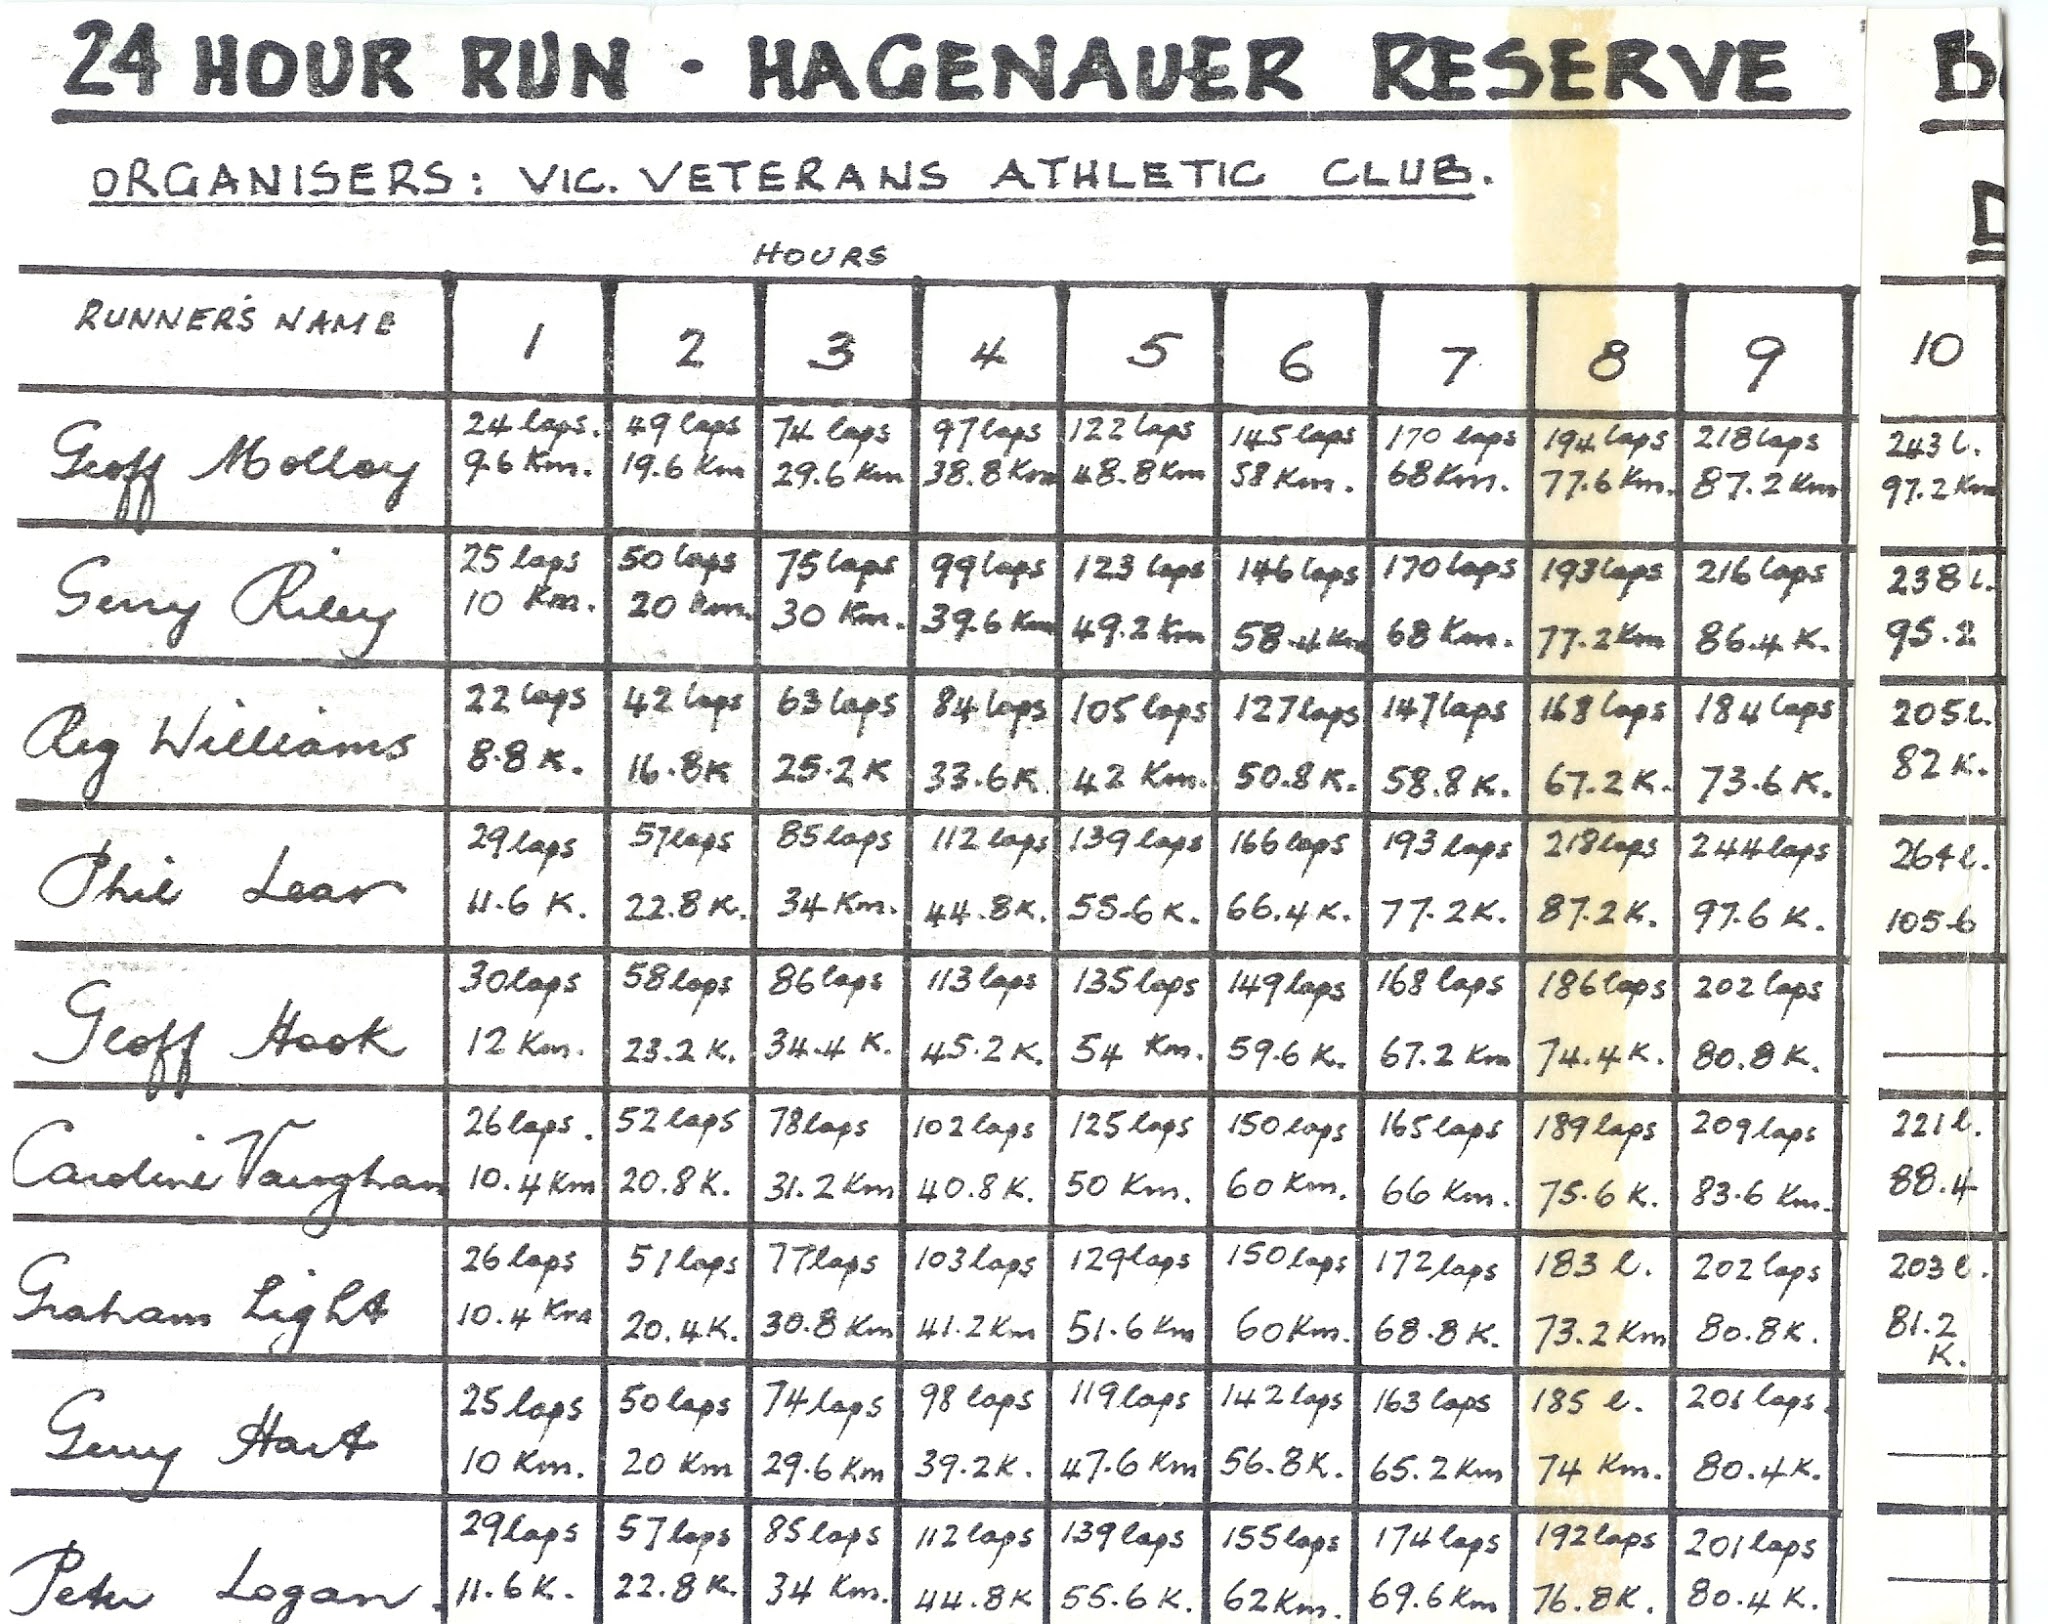 24 HOUR RUN · HAGENAUER RESERVE
ORGANISERS: VIC. VETERANS ATHLETIC CLUB.
HOURS
RUNNER'S NAME 1 2 3 4 5 6 7 8 9 10
24 laps. 49 laps 74 laps 97 laps 122 laps 145 laps 170 laps 194 laps 218 laps 243 l.
Geoff Molloy 9.6 Km. 19.6 Km 29.6 Km 38.8 Km 48.8 Km 58 Km. 68 Km. 77.6 Km. 87.2 Km 97.2 Km
25 laps 50 laps 75 laps 99 laps 123 laps 146 laps 170 laps 193 laps 216 laps 238 l.
Gerry Riley 10 Km. 20 Km. 30 Km. 39.6 Km 49.2 Km 58.4 Km 68 Km. 77.2 Km 86.4 K. 95.2
22 laps 42 laps 63 laps 84 laps 105 laps 127 laps 147 laps 168 laps 184 laps 205 l.
Reg Williams 8.8 K. 16.8 K 25.2 K 33.6 K 42 Km. 50.8 K. 58.8 K. 67.2 K. 73.6 K. 82 K.
29 laps 57 laps 85 laps 112 laps 139 laps 166 laps 193 laps 218 laps 244 laps 264 l.
Phil Lear 11.6 K. 22.8 K. 34 Km. 44.8 K. 55.6 K. 66.4 K. 77.2 K. 87.2 K. 97.6 K. 105.6
30 laps 58 laps 86 laps 113 laps 135 laps 149 laps 168 laps 186 laps 202 laps
Geoff Hook 12 Km. 23.2 K. 34.4 K. 45.2 K. 54 Km. 59.6 K. 67.2 Km 74.4 K. 80.8 K.
26 laps. 52 laps 78 laps 102 laps 125 laps 150 laps 165 laps 189 laps 209 laps 221 l.
Caroline Vaughan 10.4 Km 20.8 K. 31.2 Km 40.8 K. 50 Km. 60 Km. 66 Km. 75.6 K. 83.6 Km. 88.4
26 laps 51 laps 77 laps 103 laps 129 laps 150 laps 172 laps 183 l. 202 laps 203 l.
Graham Light 10.4 Km 20.4 K. 30.8 Km 41.2 Km 51.6 Km 60 Km. 68.8 K. 73.2 Km 80.8 K. 81.2
K.
25 laps 50 laps 74 laps 98 laps 119 laps 142 laps 163 laps 185 l. 201 laps.
Gerry Hart 10 Km. 20 Km 29.6 Km 39.2 K. 47.6 Km 56.8 K. 65.2 Km 74 Km. 80.4 K.
29 laps 57 laps 85 laps 112 laps 139 laps 155 laps 174 laps 192 laps 201 laps
Peter Logan. 11.6 K. 22.8 K. 34 Km. 44.8 K 55.6 K. 62 Km. 69.6 Km 76.8 K. 80.4 K.